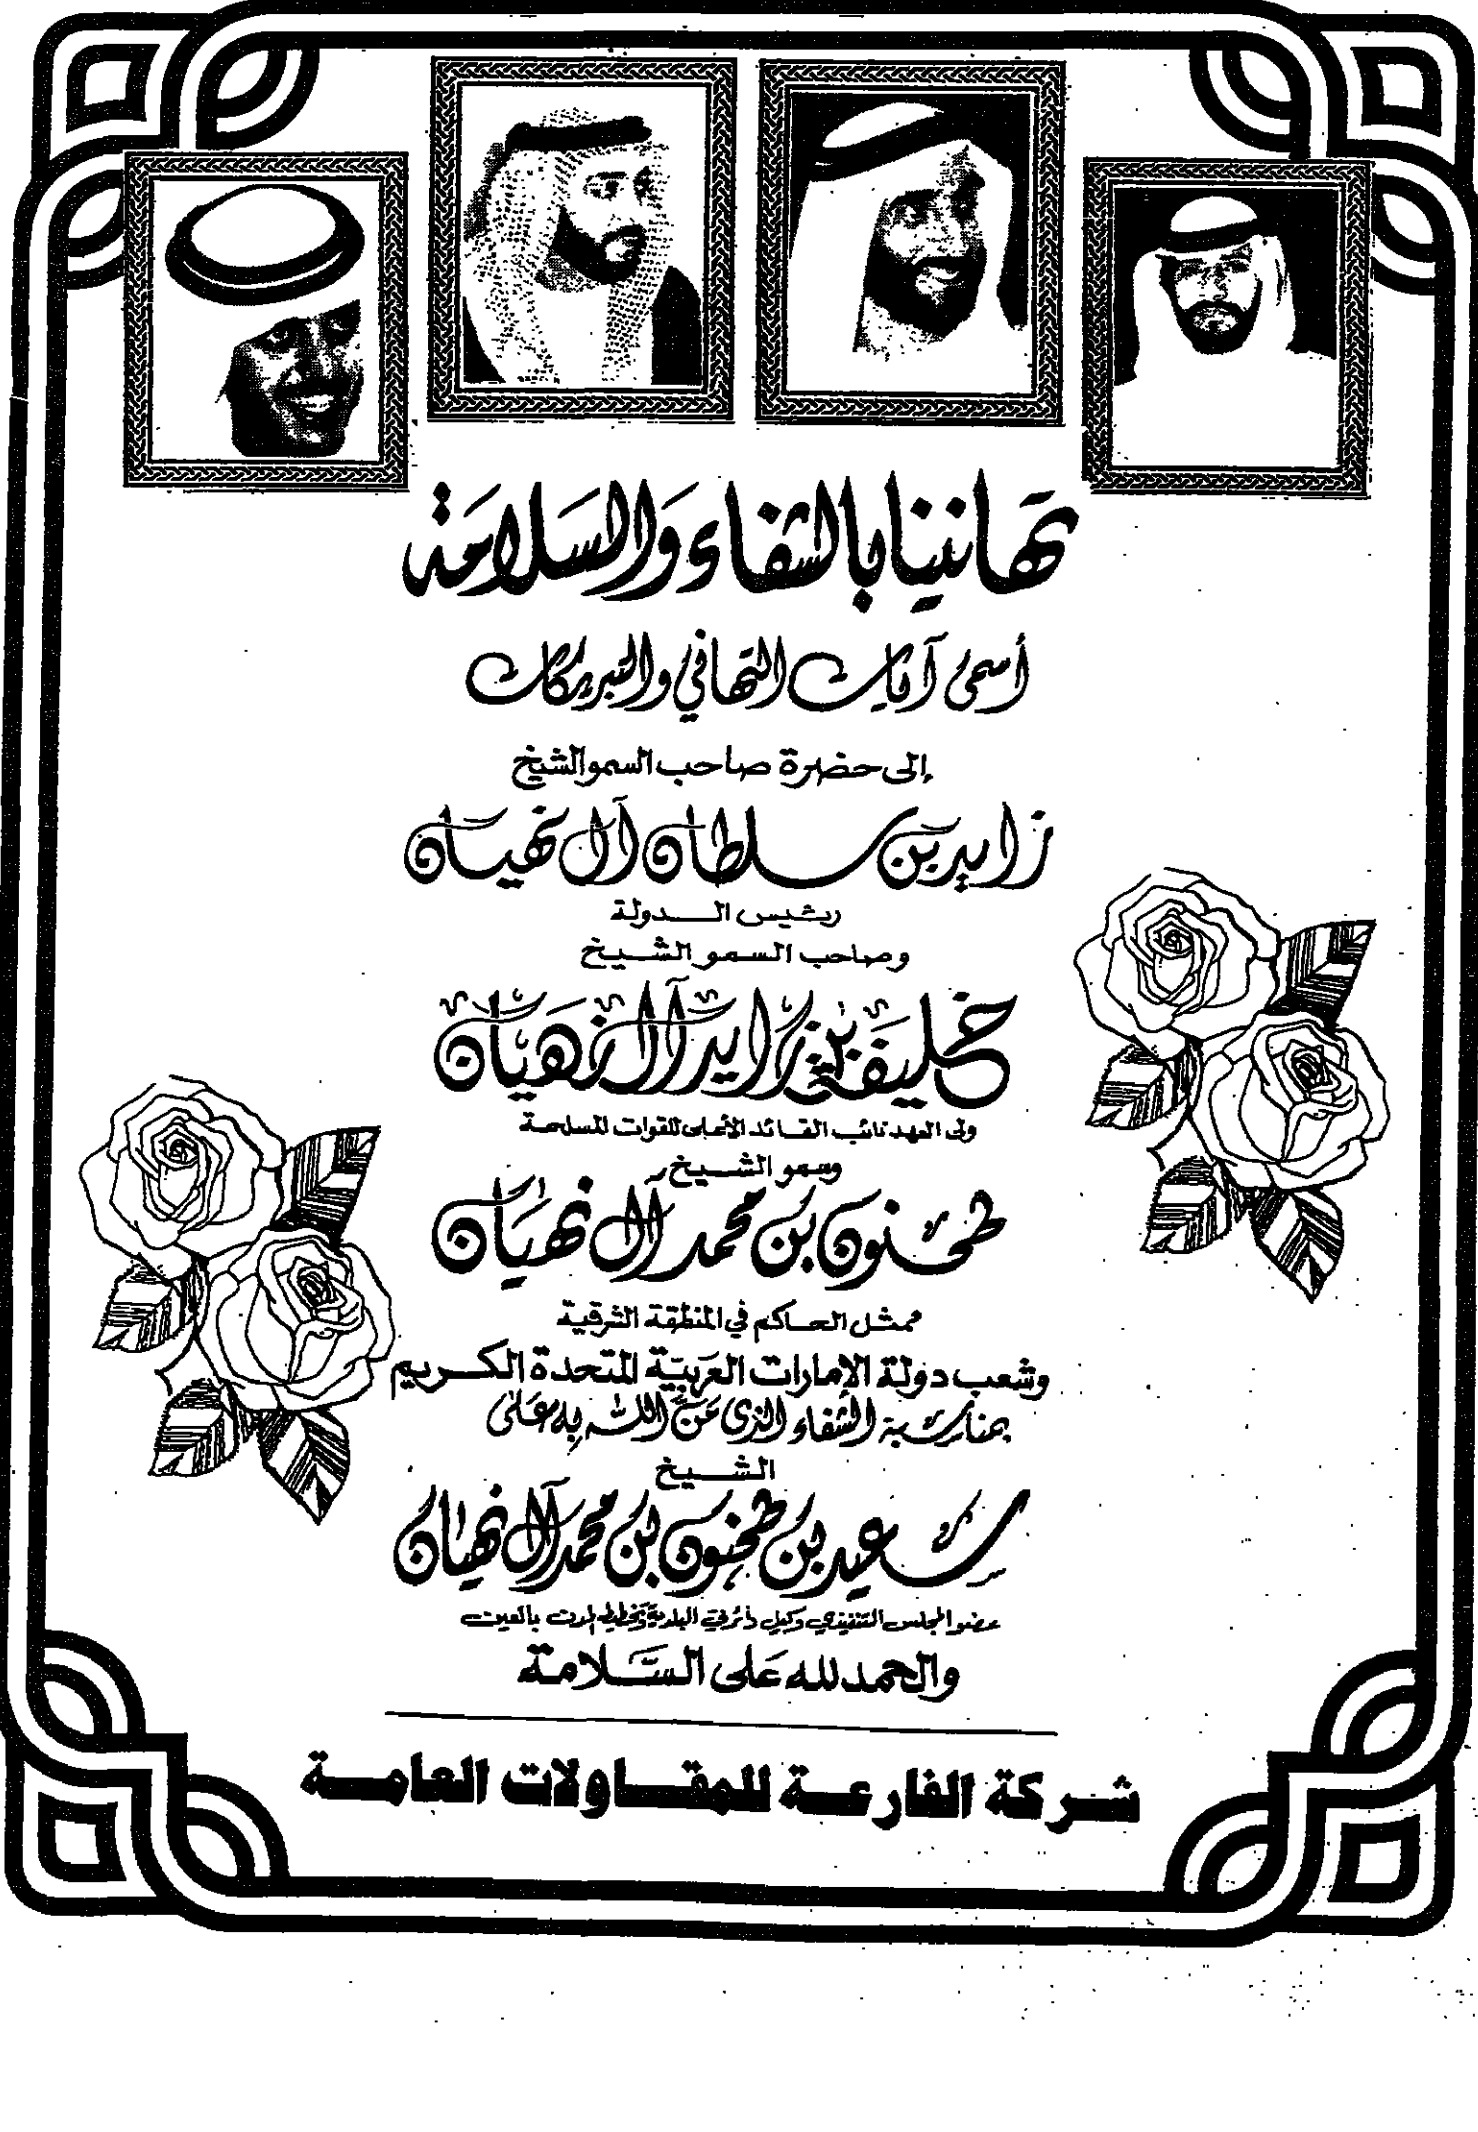 تهانينا بالشفاء والسلامة
أسمى آيات التهاني والتبريكات
إلى حضرة صاحب السمو الشيخ
زايد بن سلطان آل نهيان
رئيس الدولة
وصاحب السمو الشيخ
خليفة بن زايد آل نهيان
ولي العهد نائب القائد الأعلى للقوات المسلحة
وسمو الشيخ
طحنون بن محمد آل نهيان
ممثل الحاكم في المنطقة الشرقية
وشعب دولة الإمارات العربية المتحدة الكريم
بمناسبة الشفاء الذي مَنَّ الله به على
الشيخ
سعيد بن طحنون بن محمد آل نهيان
عضو المجلس التنفيذي وكيل دائرتي البلدية وتخطيط المدن بالعين
والحمد لله على السَّلامة
شركة الفارعة للمقاولات العامة